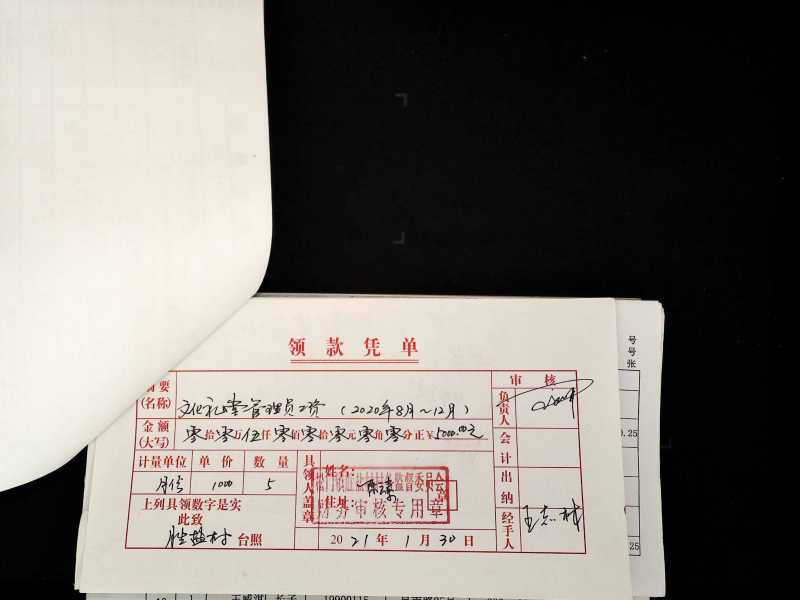 领款凭单
摘要(名称) 文化礼堂管理员工资 (2020年8月~12月)
金额(大写) 零拾零万伍仟零佰零拾零元零角零分正¥5000.00元
计量单位 单价 数量
1000 5
上列具领数字是实
此致
胜盐村 台照
具领人盖章
姓名:
住址:
财务审核专用章
2021年1月30日
审核
负责人
会计
出纳
经手人
号
号
张
0.25
.25
19900115